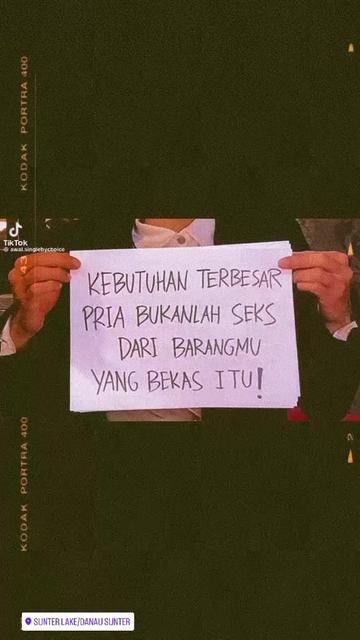 KODAK PORTRA 400
TikTok
awal.singlebychoice
KEBUTUHAN TERBESAR
PRIA BUKANLAH SEKS
DARI BARANGMU
YANG BEKAS ITU!
KODAK PORTRA 400
2
SUNTER LAKE/DANAU SUNTER